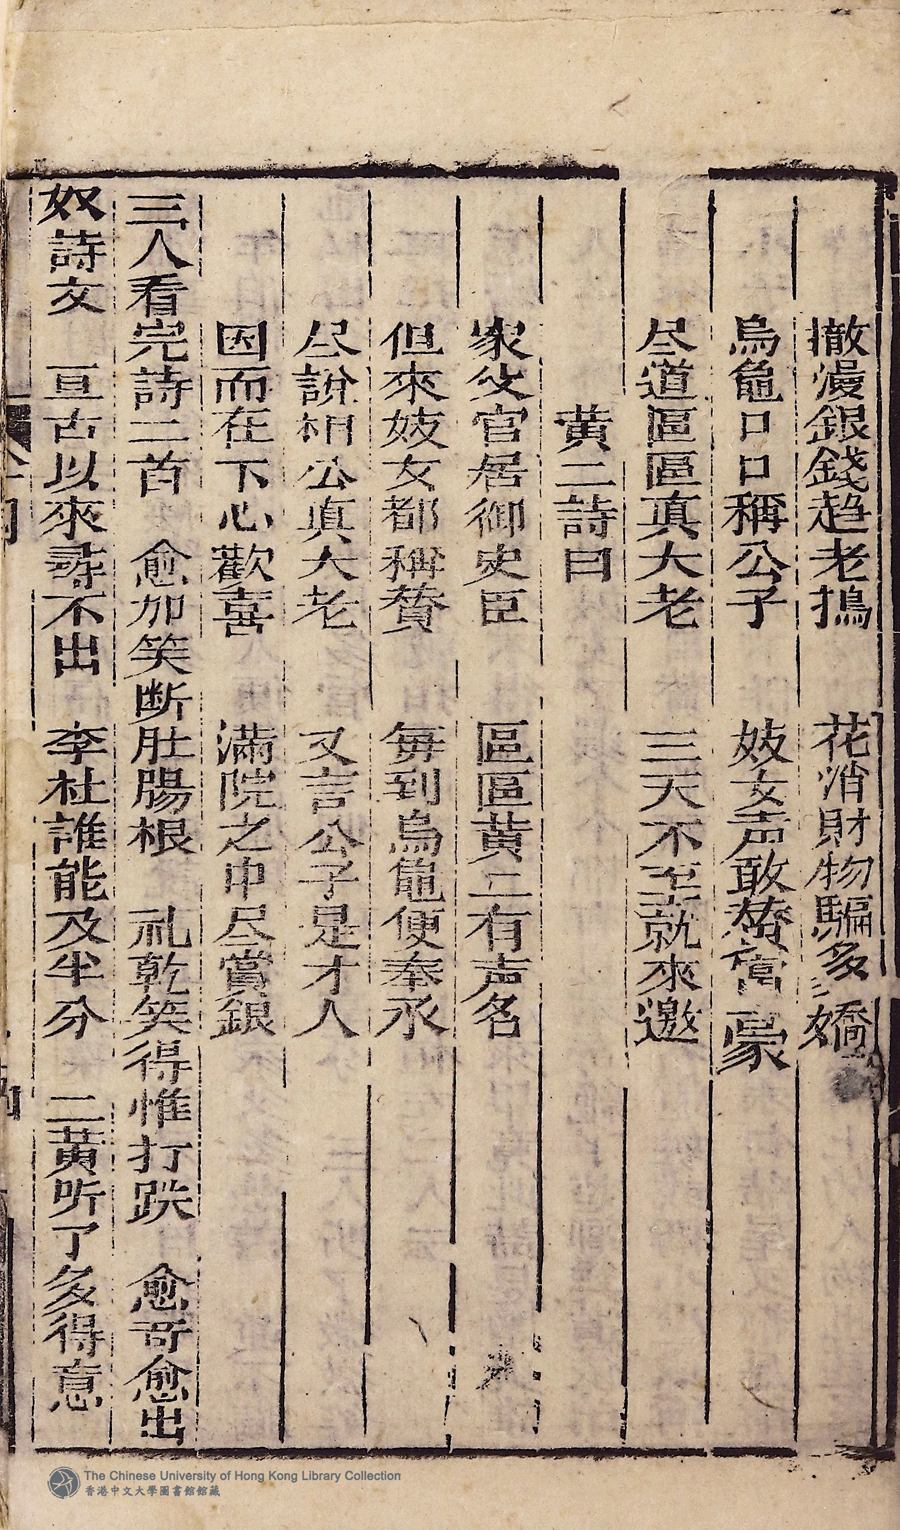 撤漫銀錢趋老鴇　花消財物騙多嬌
烏龜口口稱公子　妓女声敢贊富豪
尽道區區真大老　三天不至就來邀
黄二詩曰
家父官居御史臣　區區黄二有声名
但來妓女都稱贊　每到烏龜便奉承
尽說相公真大老　又言公子是才人
因而在下心歡喜　滿院之中尽賞銀
三人看完詩二首　愈加笑断肚腸根　礼乾笑得惟打跌　愈奇愈出
奴詩文　亘古以來尋不出　李杜誰能及半分　二黄听了多得意
The Chinese University of Hong Kong Library Collection
香港中文大學圖書館館藏